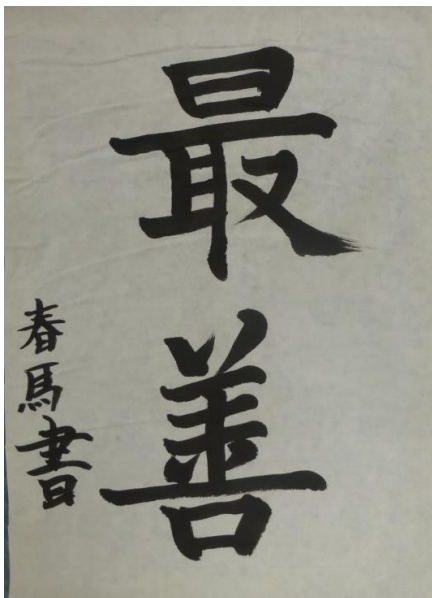 最善
春馬書